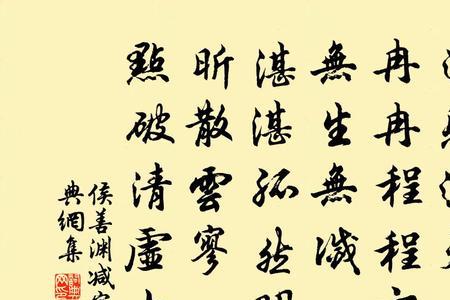 冉冉程程
無生無滅
湛湛孤然
昕散雲寥
點破清虛
侯善淵减
典網集